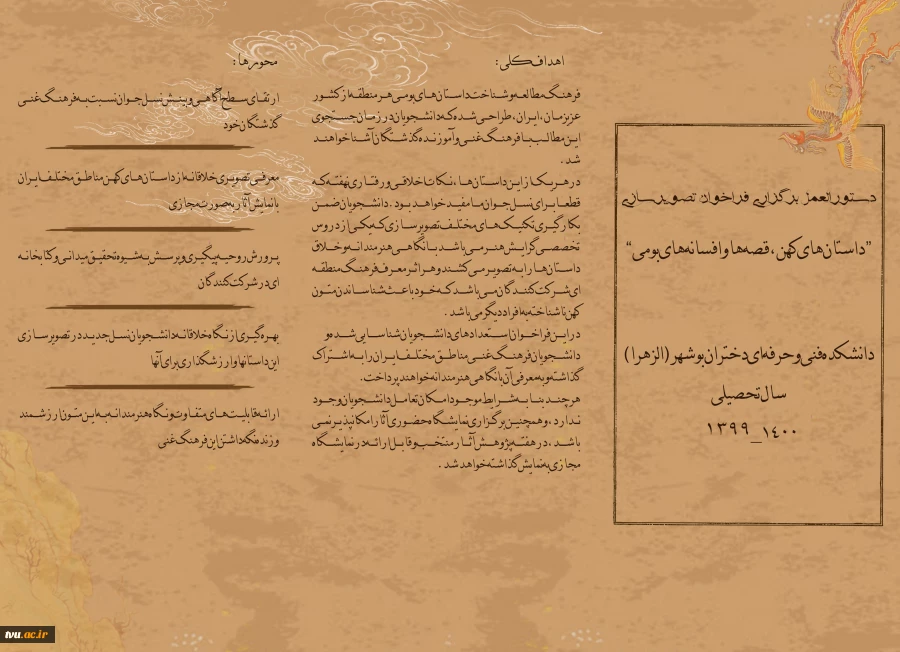 دستورالعمل برگزاری فراخوان تصویرسازی
”داستان‌های کهن، قصه‌ها و افسانه‌های بومی“
دانشکده فنی و حرفه‌ای دختران بوشهر (الزهرا)
سال تحصیلی
۱۳۹۹_۱۴۰۰
اهداف کلی:
فرهنگ مطالعه و شناخت داستان‌های بومی هر منطقه از کشور
عزیزمان، ایران، طراحی شده که دانشجویان در زمان جستجوی
این مطالب با فرهنگ غنی و آموزنده گذشتگان آشنا خواهند
شد.
در هر یک از این داستان‌ها، نکات اخلاقی و رفتاری نهفته که
قطعا برای نسل جوان ما مفید خواهد بود. دانشجویان ضمن
بکارگیری تکنیک‌های مختلف تصویرسازی که یکی از دروس
تخصصی گرایش هنر می‌باشد با نگاهی هنرمندانه و خلاق
داستان‌ها را به تصویر می‌کشند و هر اثر معرف فرهنگ منطقه
ای شرکت کنندگان می‌باشد که خود باعث شناساندن متون
کهن ناشناخته به افراد دیگر می‌باشد.
در این فراخوان استعدادهای دانشجویان شناسایی شده و
دانشجویان فرهنگ غنی مناطق مختلف ایران را به اشتراک
گذاشته و به معرفی آن با نگاهی هنرمندانه خواهند پرداخت.
هر چند بنا به شرایط موجود امکان تعامل دانشجویان وجود
ندارد، و همچنین برگزاری نمایشگاه حضوری آثار امکانپذیر نمی
باشد، در هفته پژوهش آثار منتخب و قابل ارائه در نمایشگاه
مجازی به نمایش گذاشته خواهد شد.
محورها:
ارتقای سطح آگاهی و بینش نسل جوان نسبت به فرهنگ غنی
گذشتگان خود
معرفی تصویری خلاقانه از داستان‌های کهن مناطق مختلف ایران
با نمایش آثار به صورت مجازی
پرورش روحیه پیگیری و پرسش به شیوه تحقیق میدانی و کتابخانه
ای در شرکت کنندگان
بهره‌گیری از نگاه خلاقانه دانشجویان نسل جدید در تصویرسازی
این داستانها و ارزشگذاری برای آنها
ارائه قابلیت‌های متفاوت و نگاه هنرمندانه به این متون ارزشمند
و زنده نگه داشتن این فرهنگ غنی
tvu.ac.ir